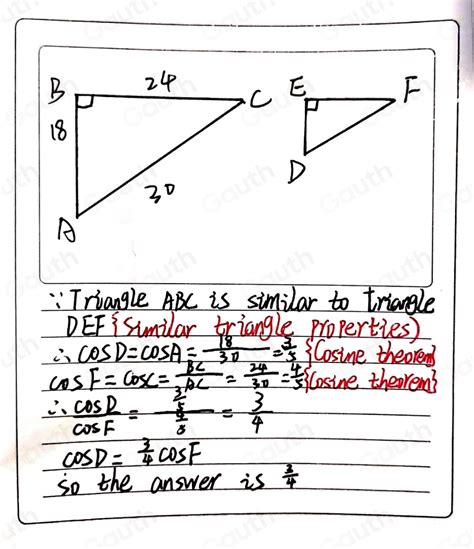 B 24 C E F
18
30
D
A
∵ Triangle ABC is similar to triangle
DEF {Similar triangle properties)
∴ cosD=cosA= 18/30 = 3/5 {Cosine theorem}
cosF= cosC= BC/AC = 24/30 = 4/5 {Cosine theorem}
∴ cosD/cosF = 3/5 / 4/5 = 3/4
cosD= 3/4 cosF
so the answer is 3/4
Gauth